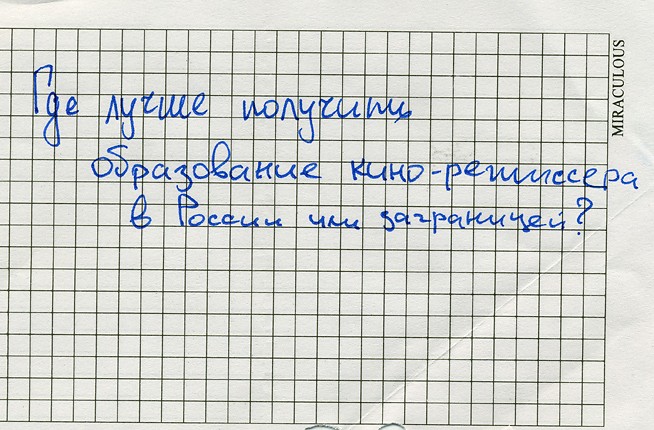 Где лучше получить
образование кино-режиссера
в России или заграницей?
MIRACULOUS